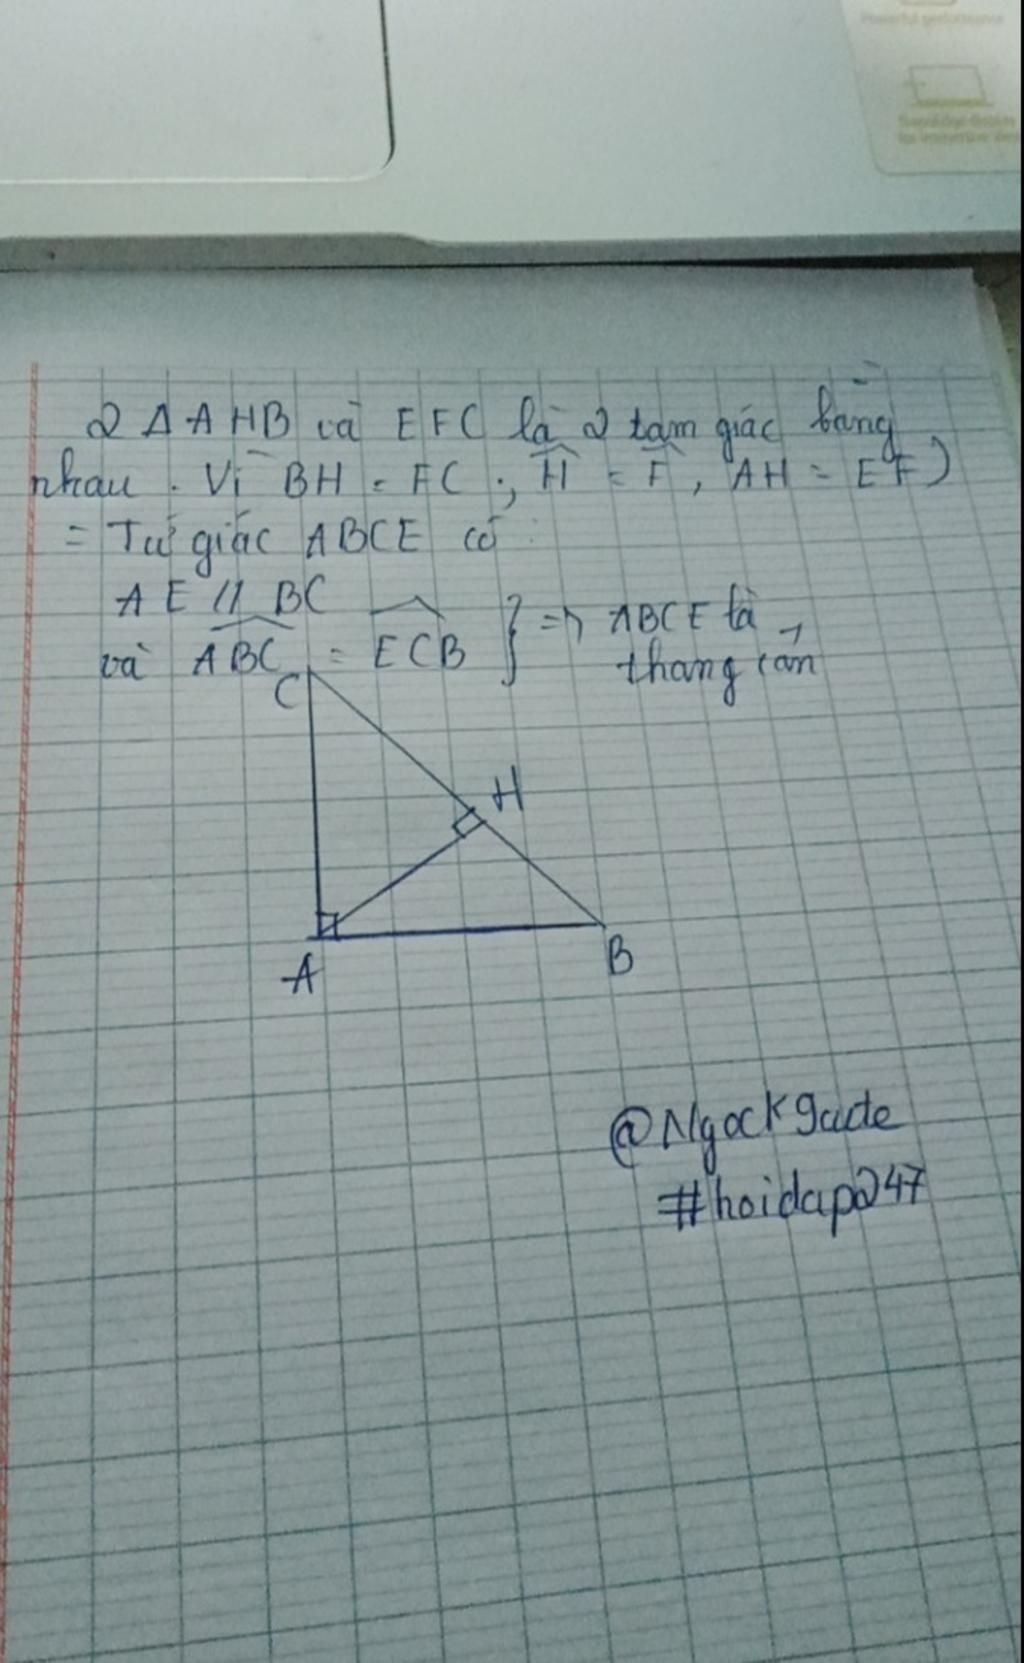 Powerful performance
2 Δ AHB và EFC là 2 tam giác bằng
nhau. Vì BH = FC ; Ĥ = F̂, AH = EF)
= Tứ giác ABCE có:
AE // BC
và \widehat{ABC} = \widehat{ECB} } => ABCE là
thang cân
C
H
A
B
@Ngockgude
#hoidap247